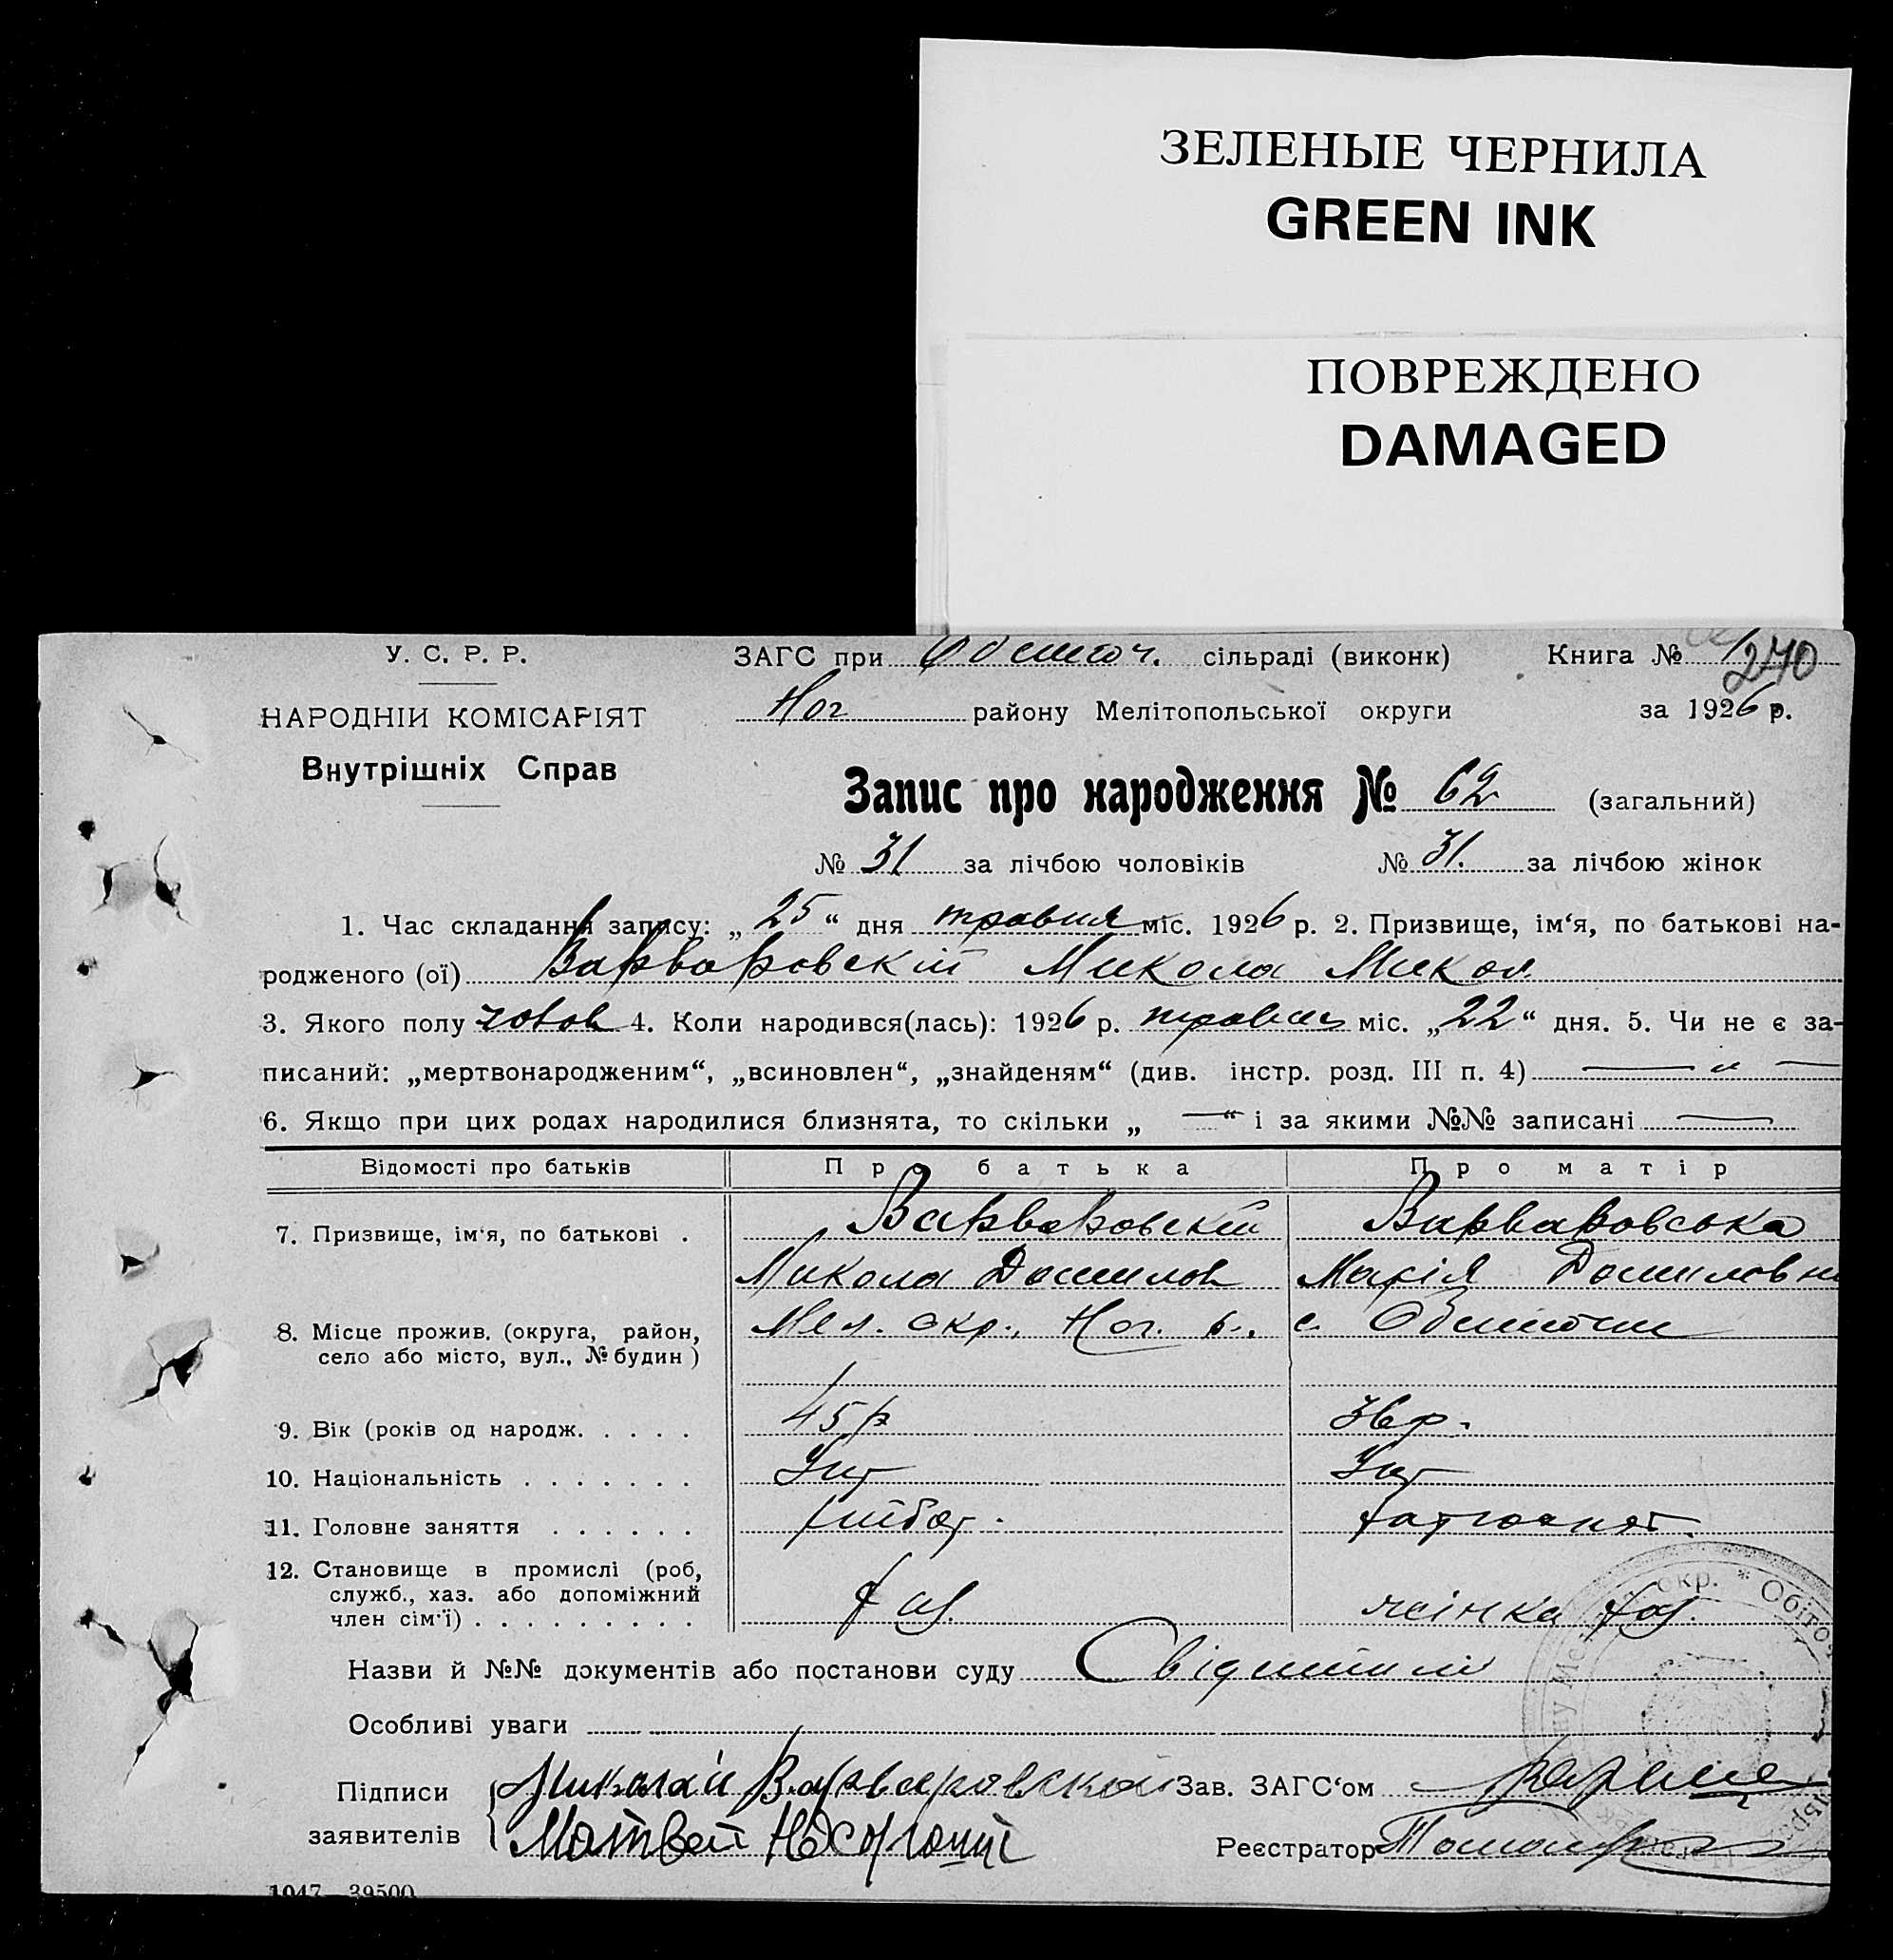 ЗЕЛЕНЫЕ ЧЕРНИЛА
GREEN INK
ПОВРЕЖДЕНО
DAMAGED
У. С. Р. Р.
ЗАГС при Обіточ. сільраді (виконк) Книга № 240
НАРОДНІЙ КОМІСАРІЯТ
Ног району Мелітопольської округи за 1926 р.
Внутрішніх Справ
Запис про народження № 62 (загальний)
№ 31 за лічбою чоловіків № 31. за лічбою жінок
1. Час складання запису: „25“ дня травня міс. 1926 р. 2. Призвище, ім‘я, по батькові на-
родженого (ої) Варваровскій Микола Микол.
3. Якого полу чолов 4. Коли народився(лась): 1926 р. травня міс. „22“ дня. 5. Чи не є за-
писаний: „мертвонародженим“, „всиновлен“, „знайденям“ (див. інстр. розд. III п. 4) — „ —
6. Якщо при цих родах народилися близнята, то скільки „ — “ і за якими №№ записані —
Відомості про батьків Про батька Про матір
7. Призвище, ім‘я, по батькові . Варваровскій Варваровська
Микола Данилов Марія Даниловн
8. Місце прожив. (округа, район, село або місто, вул., № будин) Мел. окр., Ног. р., с. Обиточне
9. Вік (років од народж. . . . . 45 р 36 р.
10. Національність . . . . . . . Укр Укр
11. Головне заняття . . . . . . хлібор.
12. Становище в промислі (роб, служб., хаз. або допоміжний член сім‘ї) . . . . . . . . . хаз. жінка хаз.
Назви й №№ документів або постанови суду
Особливі уваги
Підписи заявителів Николай Варваровской Зав. ЗАГС‘ом
Матвей
Реєстратор
1047—39500
окр. * Обіто